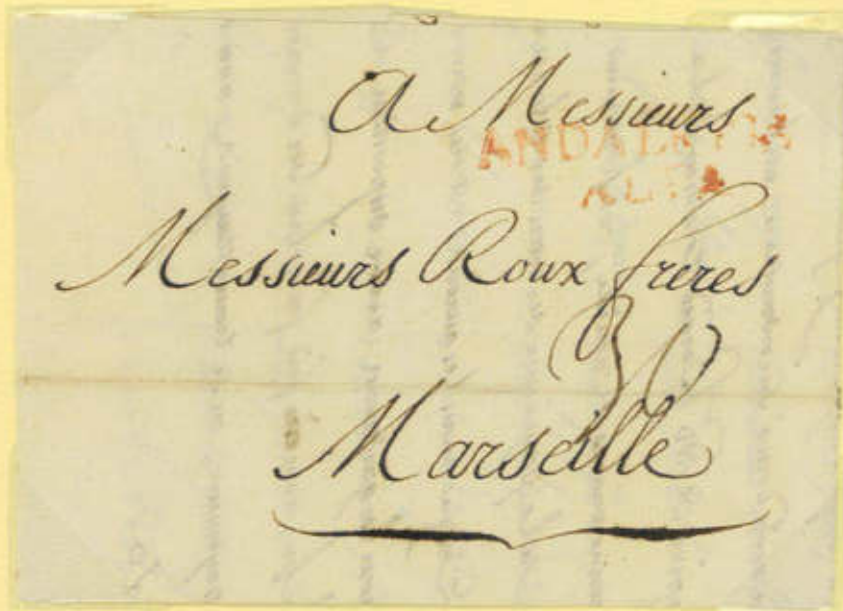 A Messieurs
ANDALUCIA
ALTA
Messieurs Roux freres
Marseille